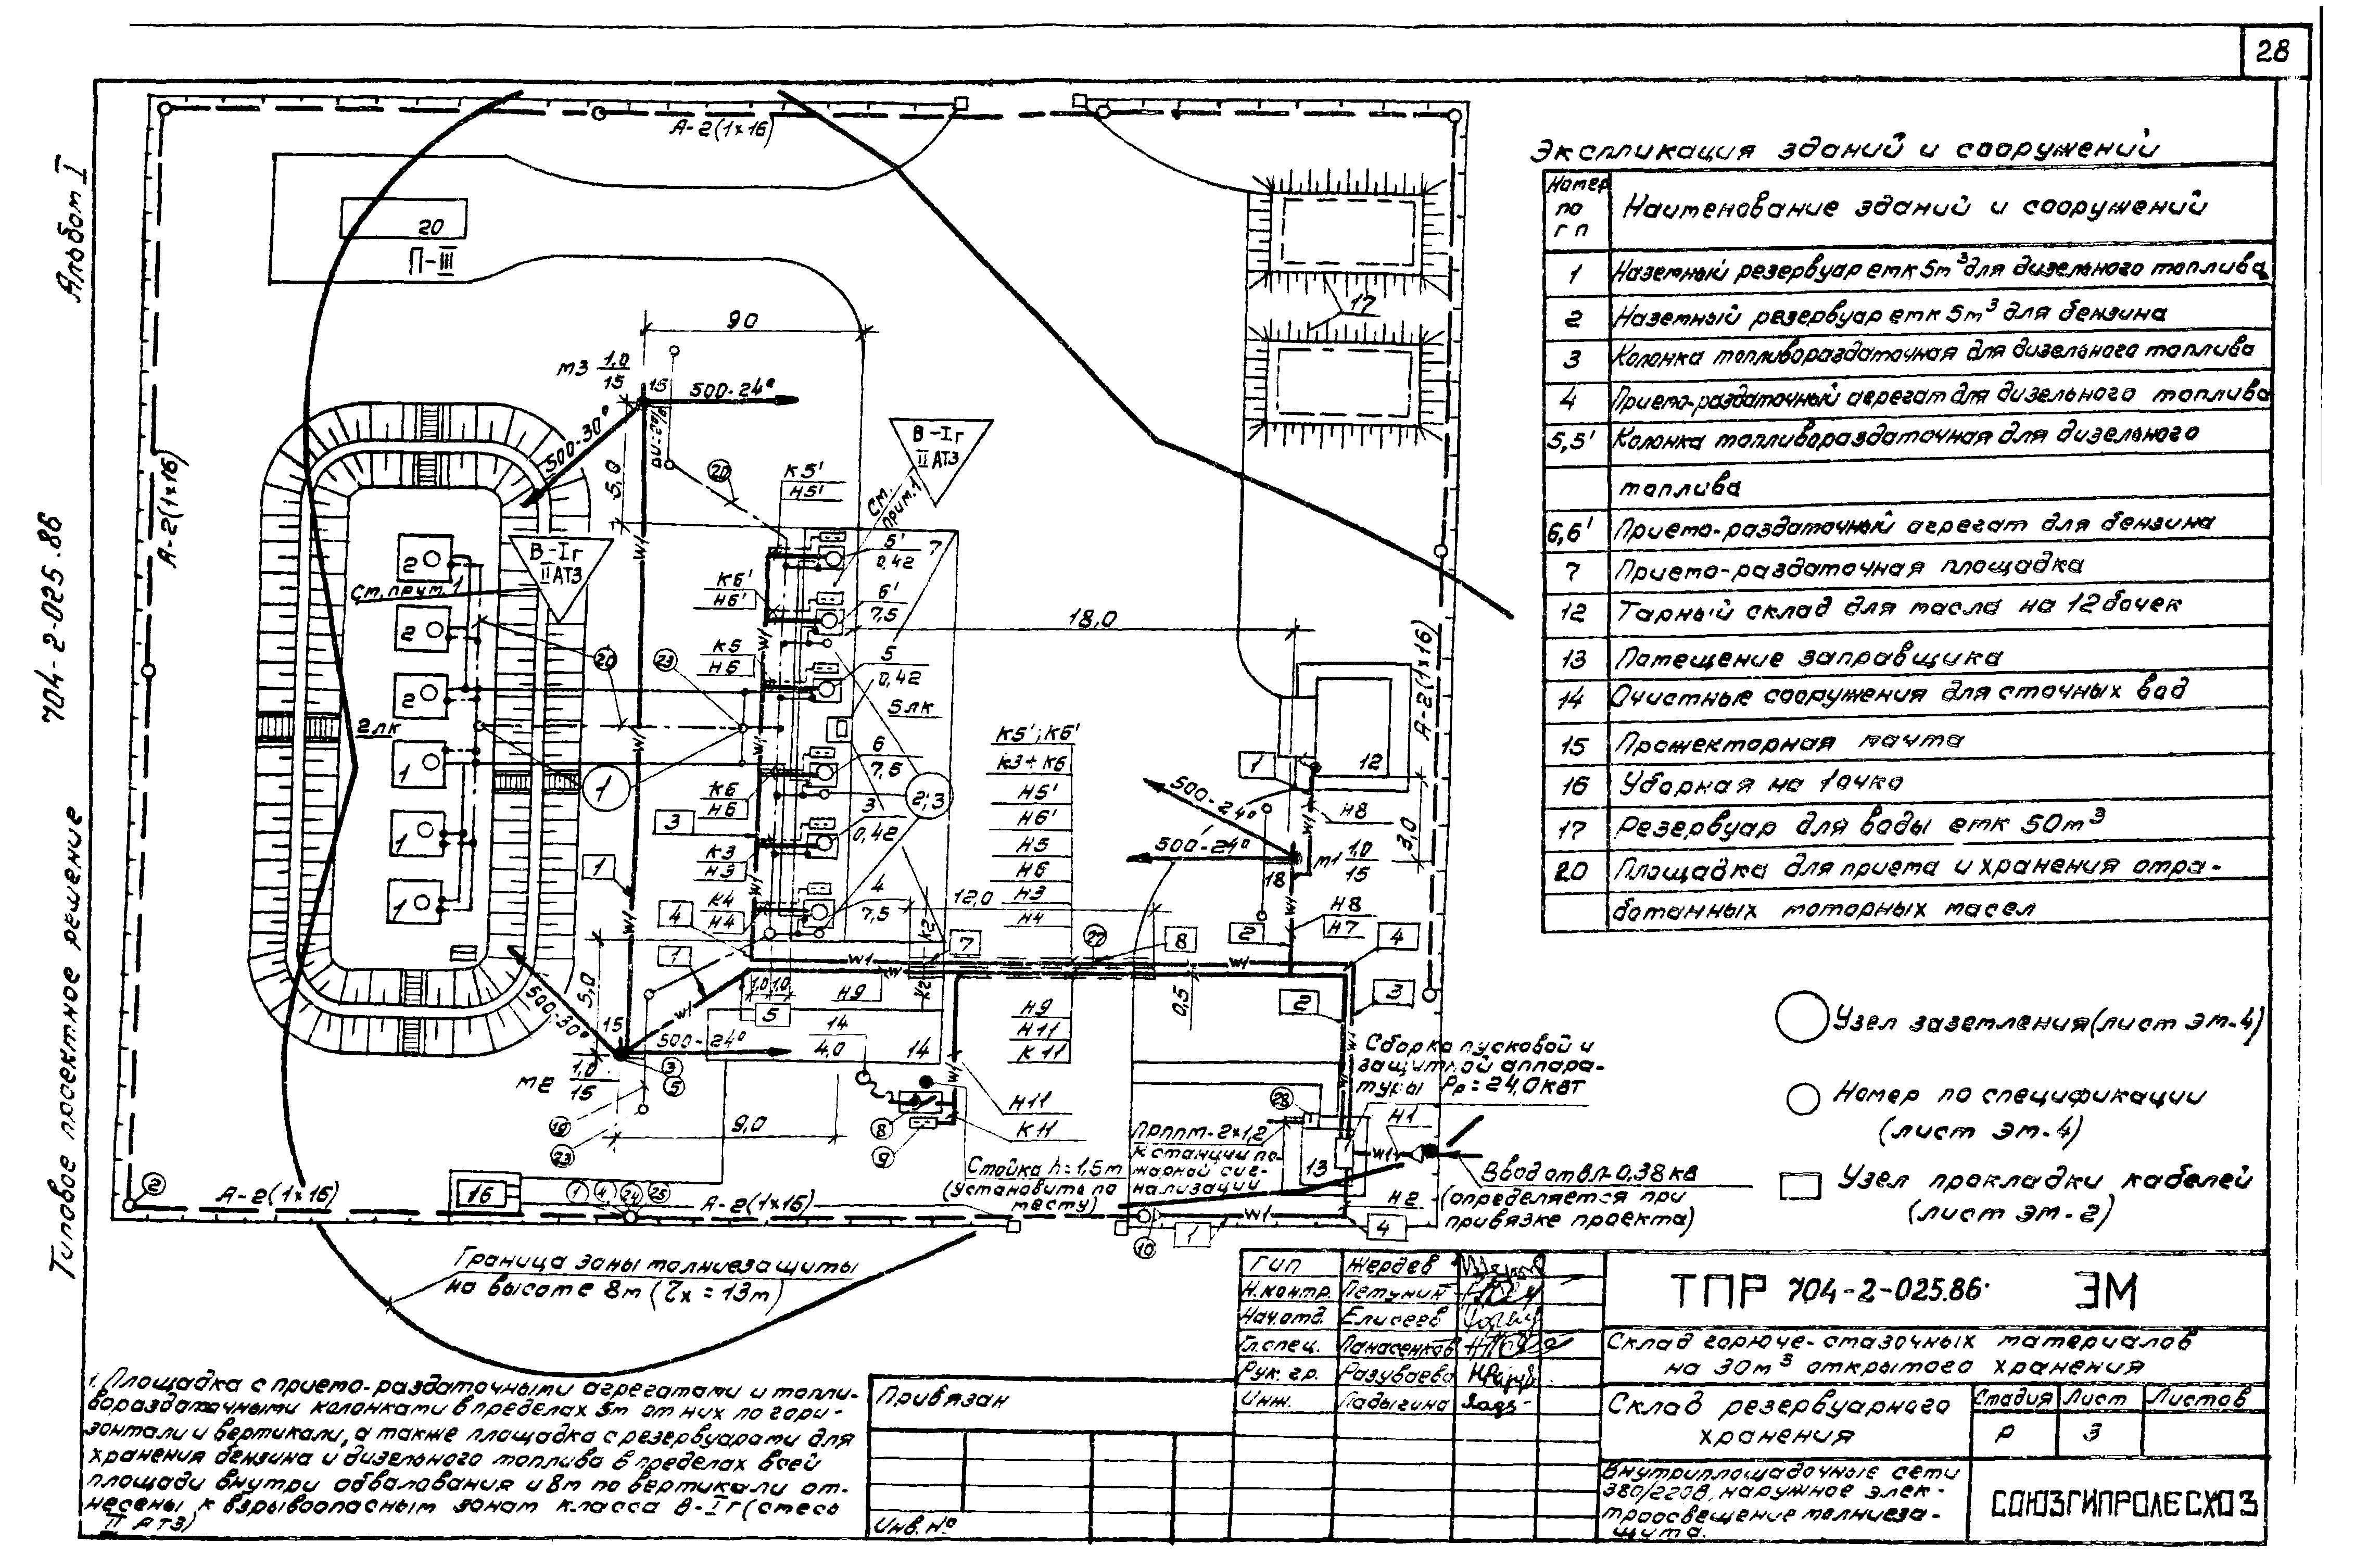 28
Альбом I
704-2-025.86
Типовое проектное решение
А-2(1х16)
20
П-III
А-2(1х16)
90
м3 1,0/15
15
500-24°
500-30°
5,0
20
К5'
Н5'
См.
прим.1
В-Iг
II АТ3
В-Iг
II АТ3
См. прим. 1
17
2
2
2
1
1
1
2лк
20
23
1
К6'
Н6'
К5
Н5
К6
Н6
К3
Н3
К4
Н4
5'
0,42
7
6'
7,5
5
0,42
5лк
6
7,5
3
0,42
4
7,5
2;3
18,0
К5'; К6'
К3÷К6
Н5'
Н6'
Н5
Н6
Н3
Н4
12,0
А-2(1х16)
12
1
Н8
3,0
500-24°
500-24°
м1 1,0/15
18
Н8
Н7
2
4
3
1
3
4
1
7
27
8
W1
К2
К2
1,0
1,0
Н9
5
0,5
2
3
Н9
Н11
К11
5,0
500-30°
15
500-24°
14
4,0
14
м2 1,0/15
3
5
19
23
9,0
8
9
Н11
К11
Сборка пусковой и
защитной аппара-
туры Рр=24,0квт
28
Н1
Прппм-2х1,2
К станции по-
жарной сиг-
нализации
13
Ввод от вл-0,38кв
(определяется при
привязке проекта)
Н2
Стойка h=1,5м
(установить по
месту)
2
А-2(1х16)
16
1
4
24
25
А-2(1х16)
10
1
W1
4
Граница зоны молниезащиты
на высоте 8м (Zх=13м)
Экспликация зданий и сооружений
Номер по гп
Наименование зданий и сооружений
1 Наземный резервуар емк 5м³ для дизельного топлива
2 Наземный резервуар емк 5м³ для бензина
3 Колонка топливораздаточная для дизельного топлива
4 Приемо-раздаточный агрегат для дизельного топлива
5,5' Колонка топливораздаточная для дизельного
топлива
6,6' Приемо-раздаточный агрегат для бензина
7 Приемо-раздаточная площадка
12 Тарный склад для масла на 12 бочек
13 Помещение заправщика
14 Очистные сооружения для сточных вод
15 Прожекторная мачта
16 Уборная на 1 очко
17 Резервуар для воды емк 50м³
20 Площадка для приема и хранения отра-
ботанных моторных масел
Узел заземления(лист эм-4)
Номер по спецификации
(лист эм-4)
Узел прокладки кабелей
(лист эм-2)
1. Площадка с приемо-раздаточными агрегатами и топли-
вораздаточными колонками в пределах 5м от них по гори-
зонтали и вертикали, а также площадка с резервуарами для
хранения бензина и дизельного топлива в пределах всей
площади внутри обвалования и 8м по вертикали от-
несены к взрывоопасным зонам класса В-Iг (смесь
II АТ3)
Привязан
Инв. №
Гип Жердев
Н.контр. Петунин
Нач.отд. Елисеев
Гл.спец. Панасенков
Рук. гр. Разуваева
Инж. Ладыгина
ТПР 704-2-025.86 ЭМ
Склад горюче-смазочных материалов
на 30м³ открытого хранения
Склад резервуарного
хранения
Стадия Лист Листов
Р 3
Внутриплощадочные сети
380/220в, наружное элек-
троосвещение молниеза-
щита.
СОЮЗГИПРОЛЕСХОЗ